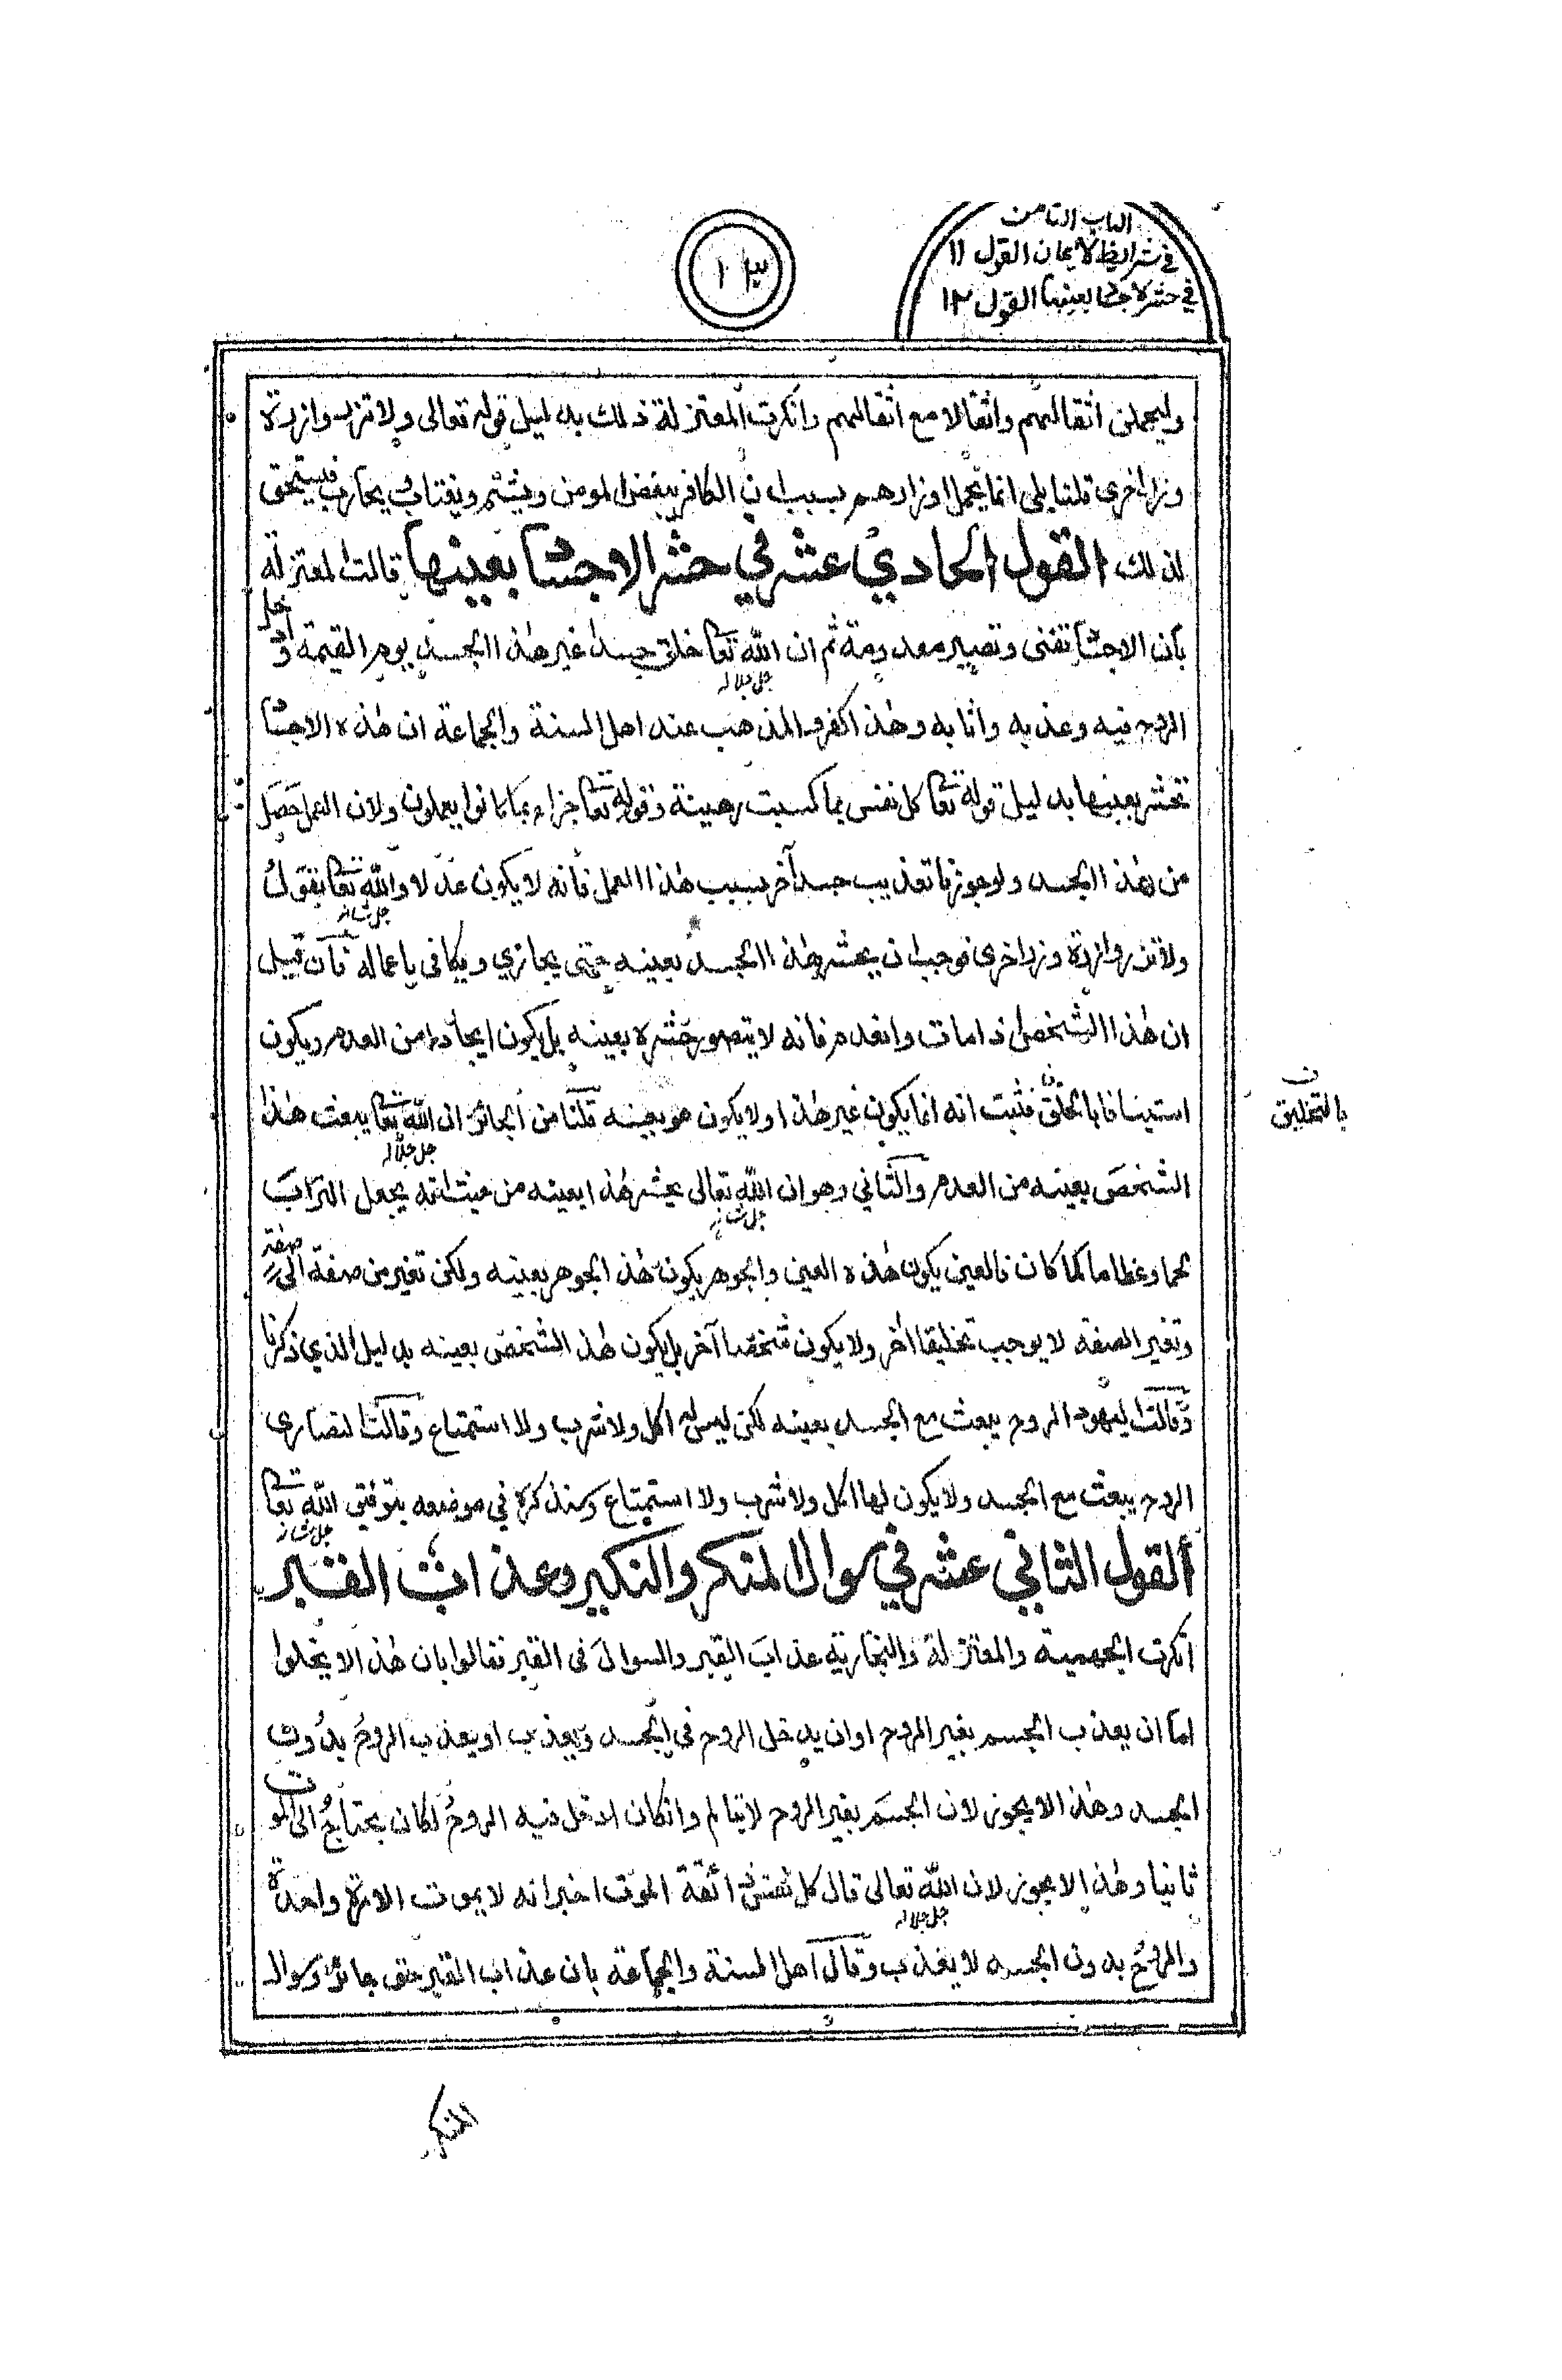 الباب الثامن
في شرايط الايمان القول ١١
في حشر الاجسا بعينها القول ١٢
١٠٣
وليحملن أثقالهم وأثقالا مع أثقالهم وانكرت المعتزلة ذلك بدليل قوله تعالى ولا تزر وازرة
وزر اخرى قلنا بلى انما يحمل اوزارهم بسبب ان الكافر يبغض المومن ويشتم ويغتاب ويحارب فيستحق
لذلك القول الحادي عشر في حشر الاجسا بعينها قالت المعتزلة
بأن الاجسا تفنى وتصير معدومة ثم ان الله تعا خلق جسدا غير هذا الجسد يوم القيمة وأدخل
جل جلاله
الروح فيه وعذبه وأثابه وهذا كفر والمذهب عند اهل السنة والجماعة ان هذه الاجسا
تحشر بعينها بدليل قوله تعا كل نفس بما كسبت رهينة وقوله تعا جزاء بما كانوا يعملون ولان العمل حصل
من هذا الجسد ولو جوزنا تعذيب جسد آخر بسبب هذا العمل فانه لا يكون عدلا والله تعا يقول
جل شانه
ولا تزر وازرة وزر اخرى فوجب ان يحشر هذا الجسد بعينه حتى يجازي ويكافى باعماله فان قيل
ان هذا الشخص اذا مات وانعدم فانه لا يتصور حشره بعينه بل يكون ايجادا من العدم ويكون
استينافا بالخلق فثبت انه انما يكون غير هذا ولا يكون هو بعينه قلنا من الجائز ان الله تعا يبعث هذا
ن
بالتخليق
جل جلاله
الشخص بعينه من العدم والثاني وهو ان الله تعالى يحشر هذا بعينه من حيث انه يجعل التراب
جل شانه
لحما وعظاما كما كان فالعين يكون هذه العين والجوهر يكون هذا الجوهر بعينه ولكن تغير من صفة الى صفة
وتغير الصفة لا يوجب تخليقا اخر ولا يكون شخصا آخر بل يكون هذا الشخص بعينه بدليل الذي ذكرنا
وقالت اليهود الروح يبعث مع الجسد بعينه لكن ليس له اكل ولا شرب ولا استمتاع وقالت النصارى
الروح يبعث مع الجسد ولا يكون لها اكل ولا شرب ولا استمتاع وسنذكره في موضعه بتوفيق الله تعا
جل شانه
القول الثاني عشر في سوال المنكر والنكير وعذاب القبر
انكرت الجهمية والمعتزلة والنجارية عذاب القبر والسوال في القبر فقالوا بان هذا لا يخلوا
اما ان يعذب الجسم بغير الروح او ان يدخل الروح في الجسد ويعذب او يعذب الروح بدون
الجسد وهذا لا يجوز لان الجسم بغير الروح لا يتالم وانكان ادخل فيه الروح لكان يحتاج الى الموت
ثانيا وهذا لا يجوز لان الله تعالى قال كل نفس ذائقة الموت اخبر انه لا يموت الا مرة واحدة
جل جلاله
والروح بدون الجسد لا يعذب وقال اهل السنة والجماعة بان عذاب القبر حق جائز وسوال
المنكر